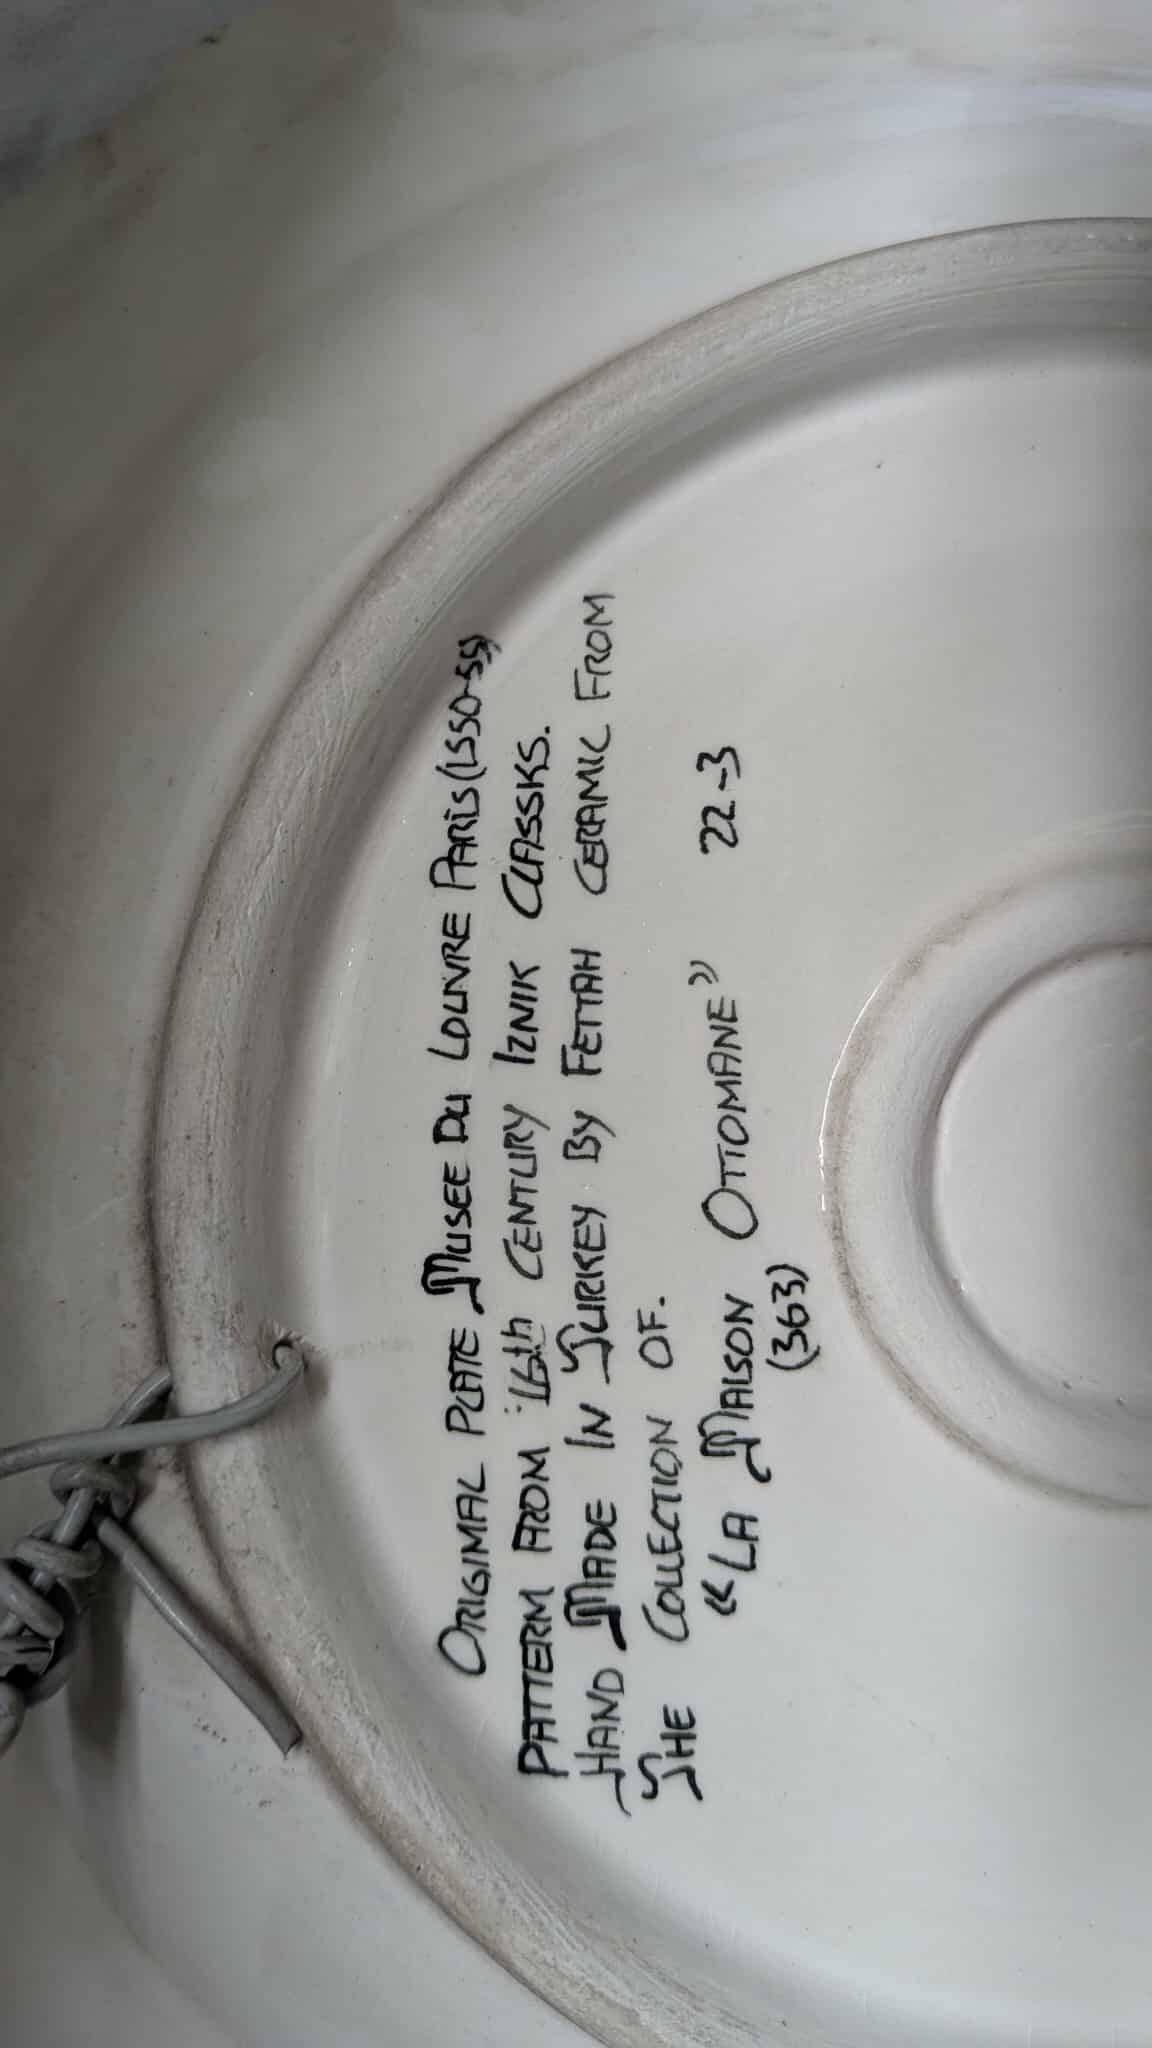 ORIGIMAL PLATE MUSEE DU LOUVRE PARiS (1550-55)
PATTERM FROM 16th CENTURY IZNIK CLASSKS.
HAND MADE IN TURKEY BY FETTAH CERAMIC FROM
THE COLLECTION OF.
«LA MAISON OTTOMANE» 22-3
(363)